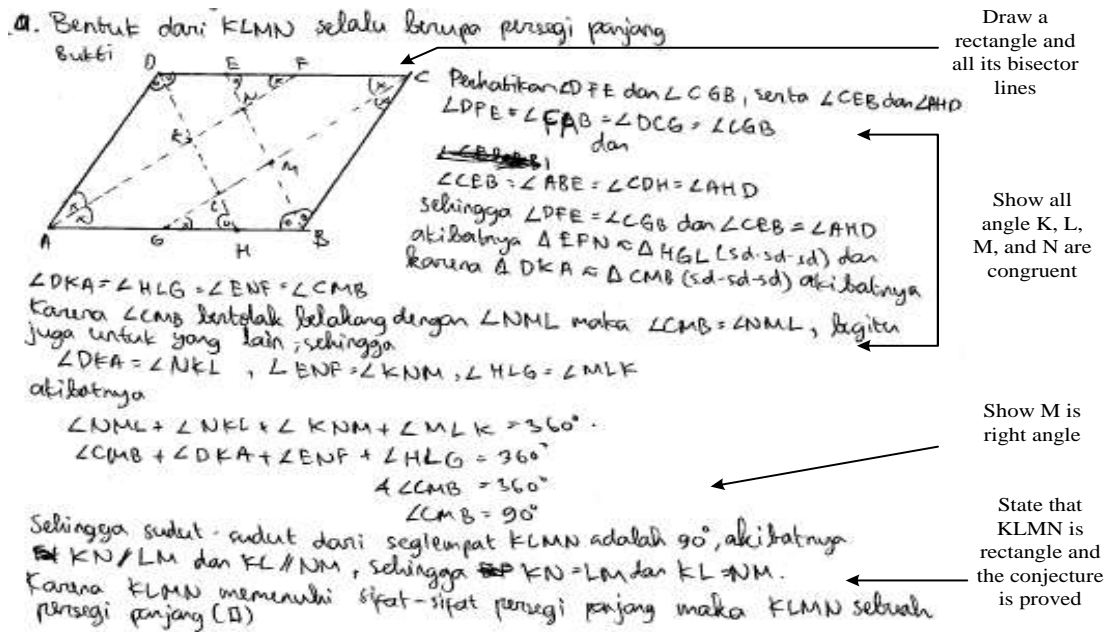 a. Bentuk dari KLMN selalu berupa persegi panjang
Bukti
D E F C
N
K
M
L
A G H B
Perhatikan ∠DFE dan ∠CGB, serta ∠CEB dan ∠AHD
∠DFE = ∠FAB = ∠DCG = ∠CGB
dan
∠CEB = ∠ABE = ∠CDH = ∠AHD
sehingga ∠DFE = ∠CGB dan ∠CEB = ∠AHD
akibatnya Δ EFN ≈ Δ HGL (sd-sd-sd) dan
karena Δ DKA ≈ Δ CMB (sd-sd-sd) akibatnya
∠DKA = ∠HLG = ∠ENF = ∠CMB
Karena ∠CMB bertolak belakang dengan ∠NML maka ∠CMB = ∠NML, begitu
juga untuk yang lain, sehingga
∠DKA = ∠NKL , ∠ENF = ∠KNM, ∠HLG = ∠MLK
akibatnya
∠NML + ∠NKL + ∠KNM + ∠MLK = 360°.
∠CMB + ∠DKA + ∠ENF + ∠HLG = 360°
4 ∠CMB = 360°
∠CMB = 90°
Sehingga sudut-sudut dari segiempat KLMN adalah 90°, akibatnya
KN // LM dan KL // NM, sehingga KN = LM dan KL = NM.
Karena KLMN memenuhi sifat-sifat persegi panjang maka KLMN sebuah
persegi panjang (□)
Draw a
rectangle and
all its bisector
lines
Show all
angle K, L,
M, and N are
congruent
Show M is
right angle
State that
KLMN is
rectangle and
the conjecture
is proved